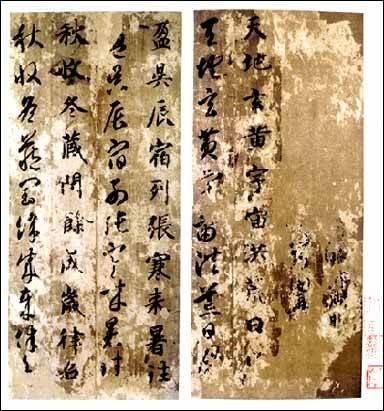 天地玄黄宇宙洪荒日
天地玄黄宇宙洪荒日月
盈昃辰宿列張寒來暑往
盈昃辰宿列張寒来暑往
秋收冬藏閏餘成歲律召
秋收冬藏閏餘成歲律召